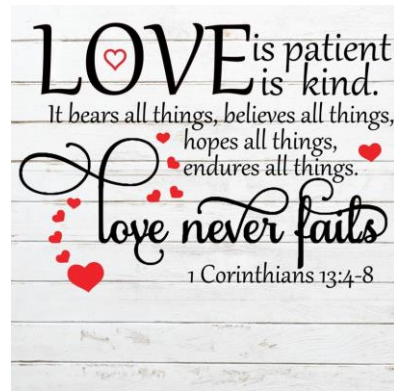 LOVE is patient
is kind.
It bears all things, believes all things,
hopes all things,
endures all things.
love never fails
1 Corinthians 13:4-8